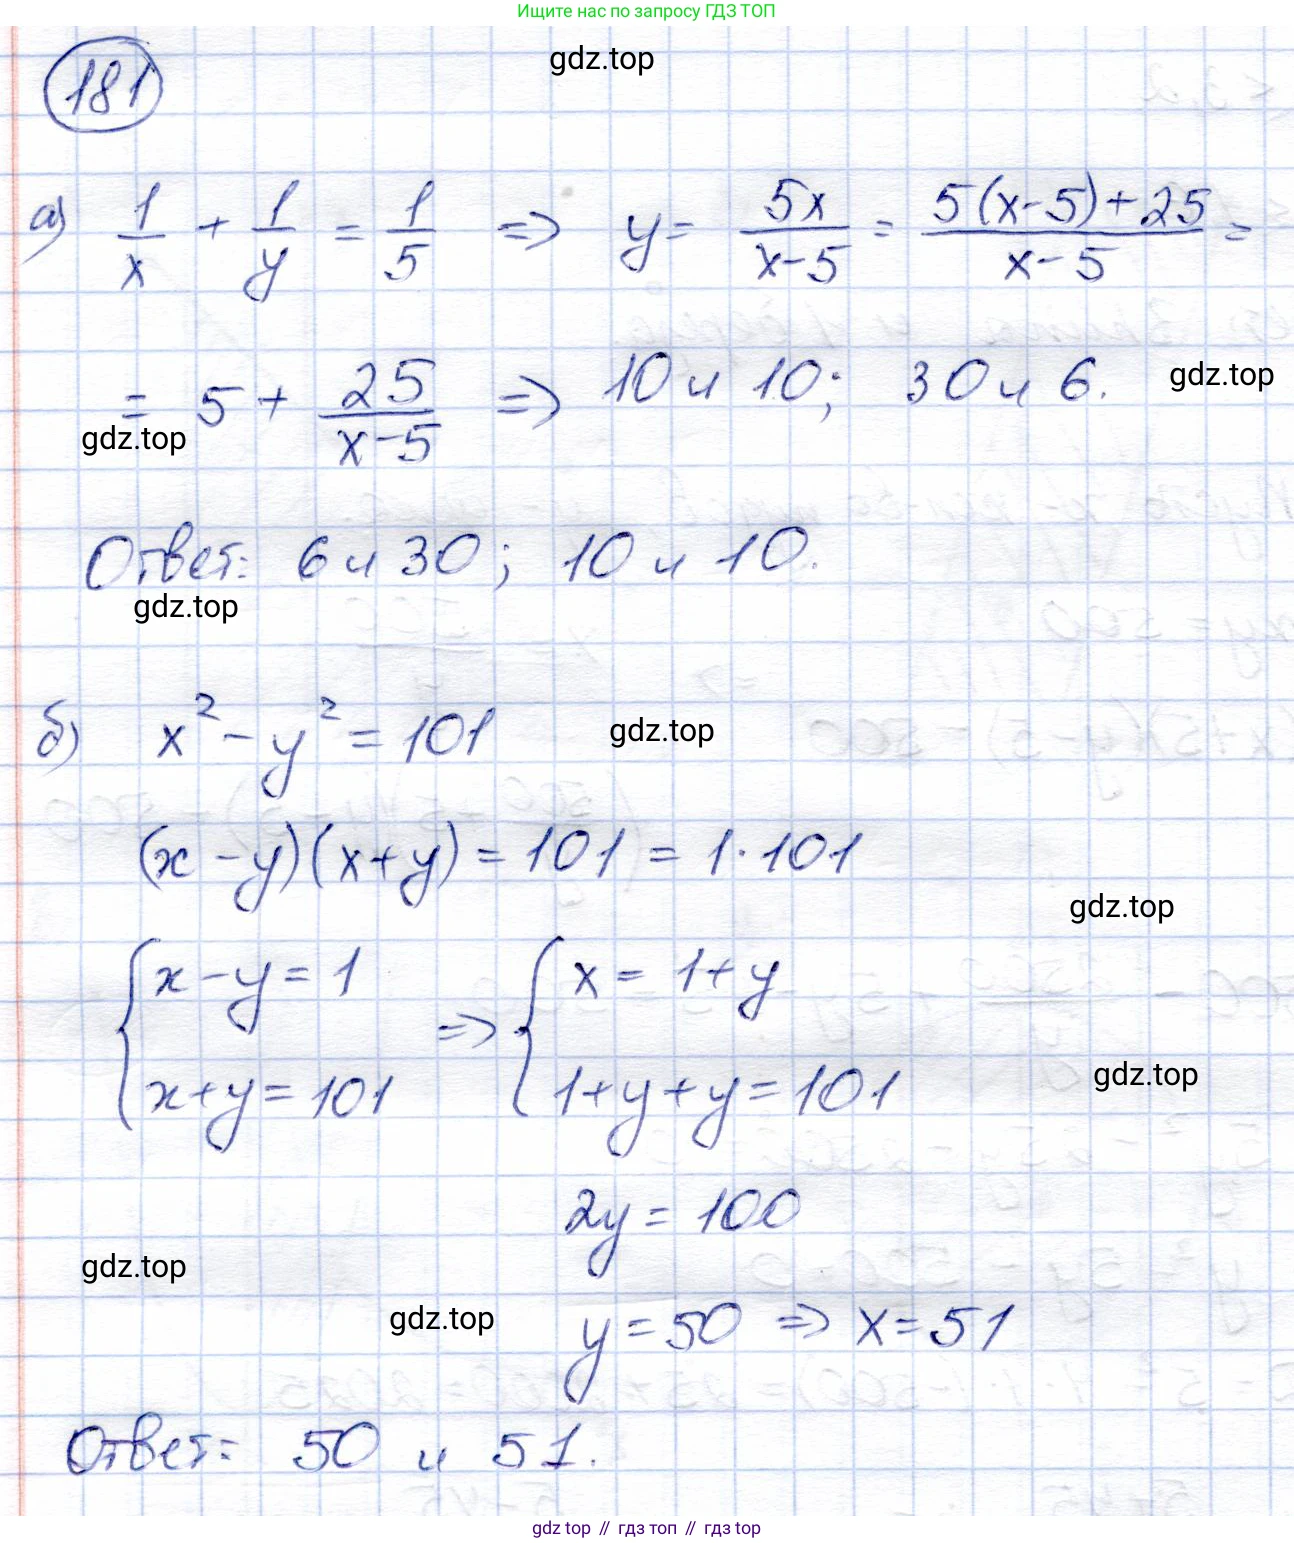 Ищите нас по запросу ГДЗ ТОП
gdz.top
181
а) 1/x + 1/y = 1/5 => y = 5x/(x-5) = (5(x-5)+25)/(x-5) =
= 5 + 25/(x-5) => 10 и 10; 30 и 6.
gdz.top
gdz.top
Ответ: 6 и 30; 10 и 10.
gdz.top
б) x² - y² = 101
gdz.top
(x-y)(x+y) = 101 = 1·101
gdz.top
{ x-y = 1 => { x = 1+y
x+y = 101 1+y+y = 101
gdz.top
2y = 100
gdz.top
gdz.top
y = 50 => x = 51
Ответ: 50 и 51.
gdz top // гдз топ // гдз top